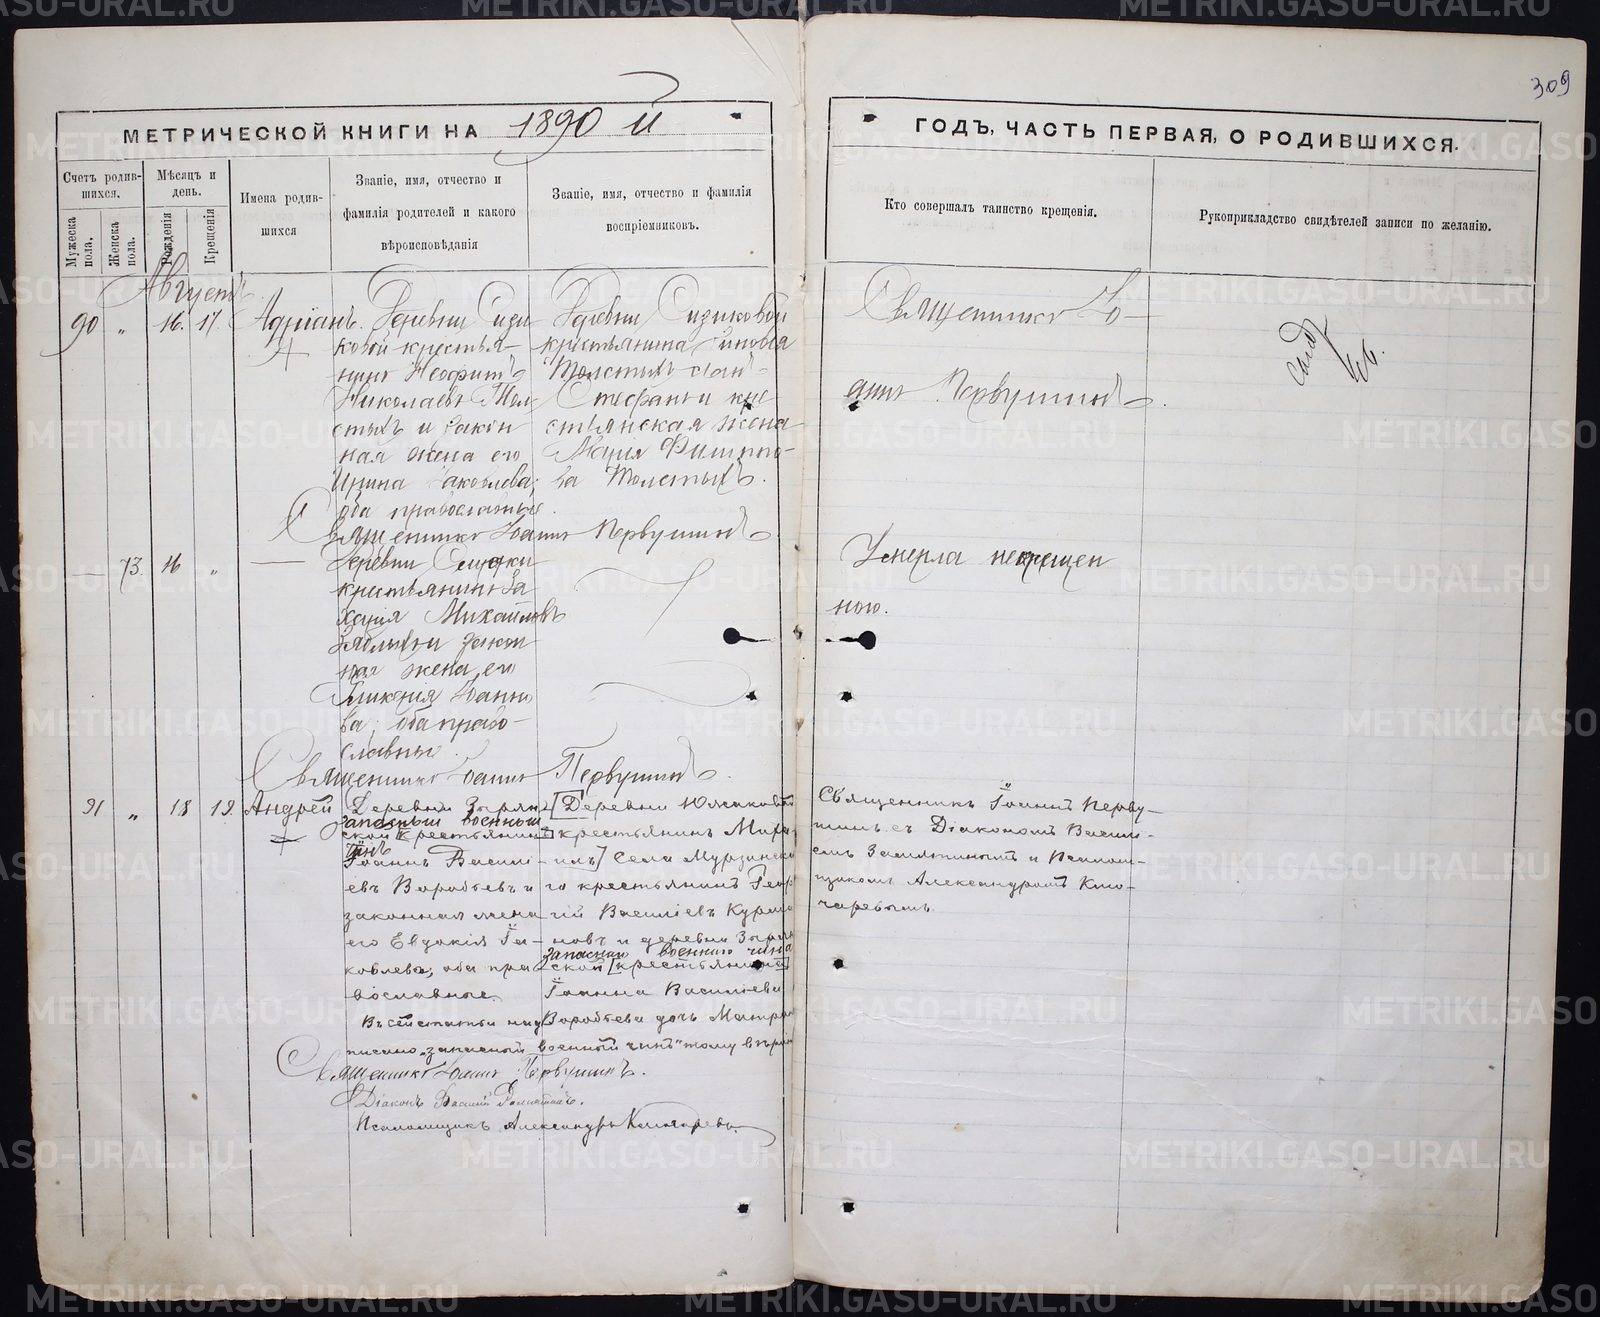 309
МЕТРИЧЕСКОЙ КНИГИ НА 1890 й
ГОДЪ, ЧАСТЬ ПЕРВАЯ, О РОДИВШИХСЯ.
Счетъ родив-
шихся.
Мужеска
пола.
Женска
пола.
Мѣсяцъ и
день.
Рожденія
Крещенія
Имена родив-
шихся
Званіе, имя, отчество и
фамилія родителей и какого
вѣроисповѣданія
Званіе, имя, отчество и фамилія
воспріемниковъ.
Кто совершалъ таинство крещенія.
Рукоприкладство свидѣтелей записи по желанію.
Августъ
90 „ 16. 17. Адріанъ.
Деревни Сизи-
ковой крестья-
нинъ Неофитъ
Николаевъ Тол-
стыхъ и закон-
ная жена его
Ирина Яковлева;
оба православные.
Деревни Сизиковой
крестьянина
Толстыхъ сынъ
Стефанъ и кре-
стьянская жена
Марія Филиппо-
ва Толстыхъ.
Священникъ Іо-
аннъ Первушинъ.
Священникъ Іоаннъ Первушинъ
— 73. 16 „ —
Деревни
крестьянинъ За-
харія Михайловъ
и закон-
ная жена его
Гликерія Іоанно-
ва; оба право-
славные.
Умерла некрещен
ною.
Священникъ Іоаннъ Первушинъ.
91 „ 18 19. Андрей
Деревни Зырян-
запасный военный
ской [крестьянинъ]
чинъ
Іоаннъ Василі-
евъ Воробьевъ и
законная жена
его Евдокія Іа-
ковлева; оба пра-
вославные.
[Деревни Южаковой
крестьянинъ Миха-
илъ] села Мурзинска-
го крестьянинъ Геор-
гій Василіевъ
новъ и деревни Зырян-
запаснаго военнаго чина
ской [крестьянина]
Іоанна Василіева
Воробьева дочь Матрона
Въ сей статьи над-
писано „запасный военный чинъ" тому вѣрить
Священникъ Іоаннъ Перву-
шинъ съ Діакономъ Васили-
емъ Замятинымъ и Псалом-
щикомъ Александромъ Клю-
чаревымъ.
Священникъ Іоаннъ Первушинъ.
Діаконъ Василій Замятинъ.
Псаломщикъ Александръ Ключаревъ.
METRIKI.GASO-URAL.RU